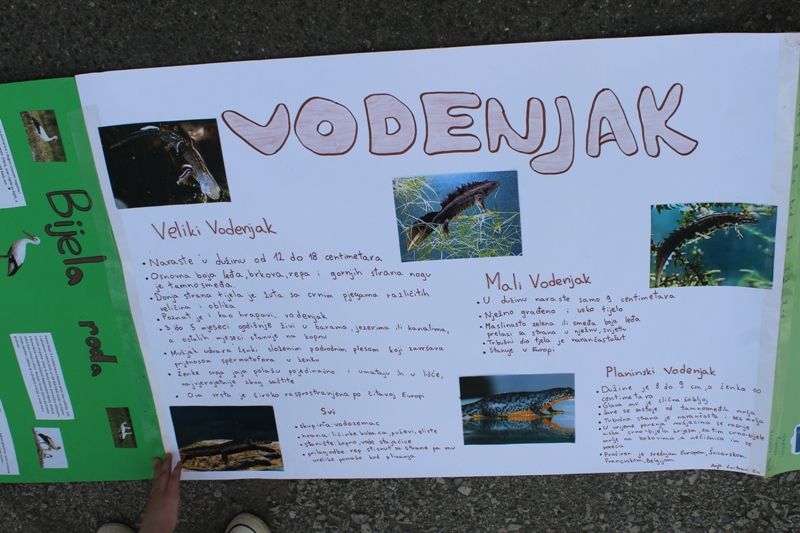 VODENJAK
Bijela roda
Veliki Vodenjak
• Naraste u dužinu od 12 do 18 centimetara
• Osnovna boja leđa, brkova, repa i gornjih strana nogu
je tamno smeđa.
• Donja strana tijela je žuta sa crnim pjegama različitih
veličina i oblika
• Poznat je i kao hrapavi, vodenjak
• 3 do 5 mjeseci godišnje živi u barama, jezerima ili kanalima,
a ostalih mjeseci stanuje na kopnu
• Mužjak udvara ženki složenim podvodnim plesom koji završava
prijenosom spermatofora u ženku
• Ženke svoja jaja polažu pojedinačno i umataju ih u lišće,
zbog zaštite
• Ova vrsta je široko rasprostranjena po čitavoj Evropi
Svi
• skupina: vodozemac
• hrana: ličinke kukaca, puževi, gliste
• kopno, vode stajaćice
• prilagodbe: rep stisnut sa strane pa mu
uvelike pomaže kod plivanja
Mali Vodenjak
• U dužinu naraste samo 9 centimetara
• Nježno građeno i usko tijelo
• Maslinasto zelena ili smeđa boja leđa
prelazi sa strana u nježnu, svijetlu
• Trbušni dio tjela je narančastožut
• Stanuje u Evropi
Planinski Vodenjak
• Dužine je 8 do 9 cm, a ženka 10
centimetara
• Glava mu je slična žabljoj
• Šare se sastoje od tamnosmeđih mrlja
• Trbušna strana je narančasta i bez mrlja
• U vrijeme parenja mužjacima se razvije
crno-bijela
mrlje na bokovima
• Proširen je srednjom Europom, Švicarskom
Francuskom, Belgijom